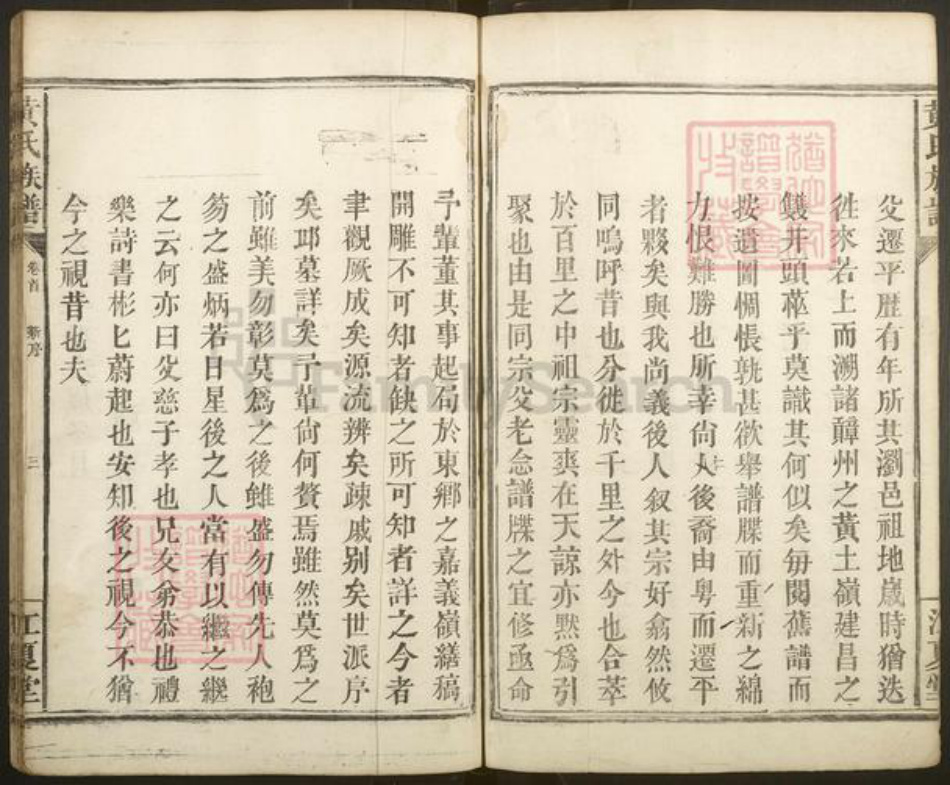 父遷平歴有年所其瀏邑祖地歲時猶迭
徃來若上而溯諸贛州之黃土嶺建昌之
雙井頭蓙乎莫識其何似矣毎閱舊譜而
按遺圖惆悵孰甚欲舉譜牒而重新之綿
力恨難勝也所幸尙友後裔由粤而遷平
者夥矣與我尚義後人叙其宗好翕然攸
同嗚呼昔也分徙於千里之外今也合萃
於百里之中祖宗靈爽在天諒亦黙爲引
聚也由是同宗父老念譜牒之宜修亟命
予輩董其事起局於東鄉之嘉義嶺繕稿
開雕不可知者缺之所可知者詳之今者
聿觀厥成矣源流辨矣疎戚别矣世派序
矣邱墓詳矣予輩尙何贅焉雖然莫爲之
前雖美勿彰莫爲之後雖盛勿傳先人袍
笏之盛炳若日星後之人當有以繼之繼
之云何亦曰父慈子孝也兄友弟恭也禮
樂詩書彬匕蔚起也安知後之視今不猶
今之視昔也夫
黃氏族譜
卷首
新序
三
江夏堂
FamilySearch